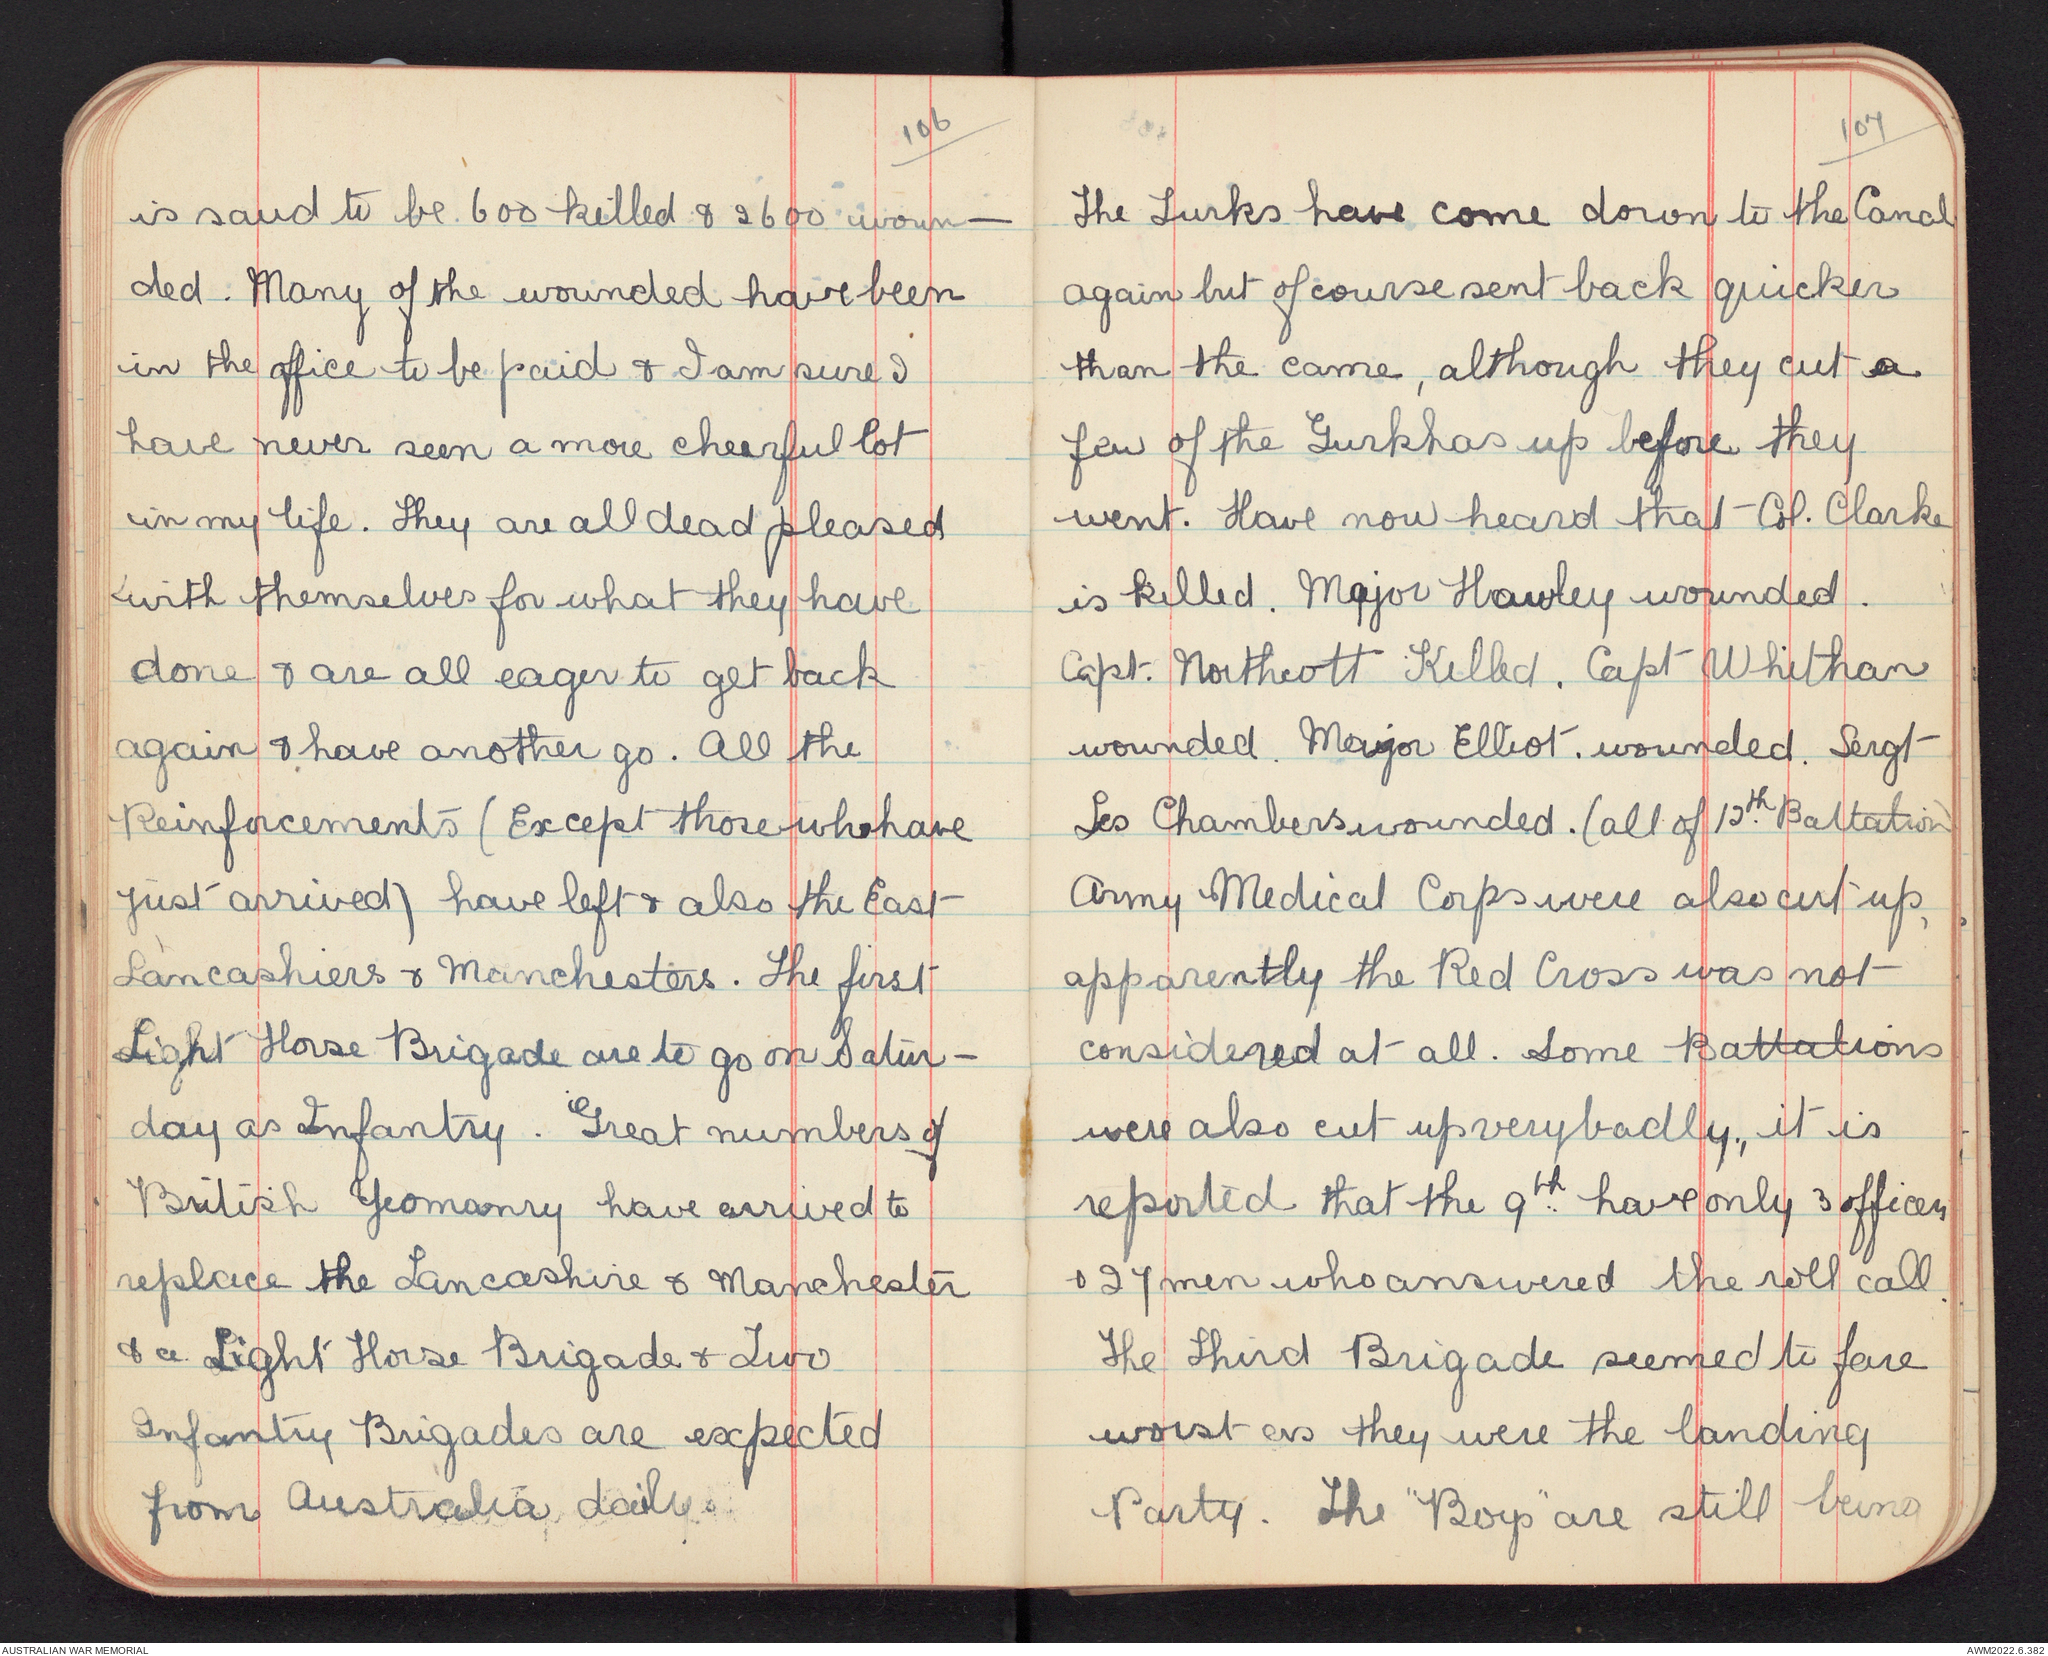 106
is said to be 600 killed & 2600 woun-
ded. Many of the wounded have been
in the office to be paid & I am sure I
have never seen a more cheerful lot
in my life. They are all dead pleased
with themselves for what they have
done & are all eager to get back
again & have another go. All the
Reinforcements (Except those who have
just arrived) have left & also the East
Lancashiers & Manchesters. The first
Light Horse Brigade are to go on Satur-
day as Infantry. Great numbers of
British Yeomanry have arrived to
replace the Lancashire & Manchester
& a Light Horse Brigade & Two
Infantry Brigades are expected
from Australia daily.
107
The Turks have come down to the Canal
again but of course sent back quicker
than the came, although they cut a
few of the Gurkhas up before they
went. Have now heard that Col. Clarke
is killed. Major Hawley wounded.
Capt. Northcott Killed. Capt Whithan
wounded. Major Elliot. wounded. Sergt
Les Chambers wounded. (all of 12th Battation)
Army Medical Corps were also cut up,
apparently the Red Cross was not
considered at all. Some Battations
were also cut up very badly, it is
reported that the 9th have only 3 officers
& 27 men who answered the roll call.
The Third Brigade seemed to fare
worst as they were the landing
Party. The "Boys" are still being
AUSTRALIAN WAR MEMORIAL
AWM2022.6.382